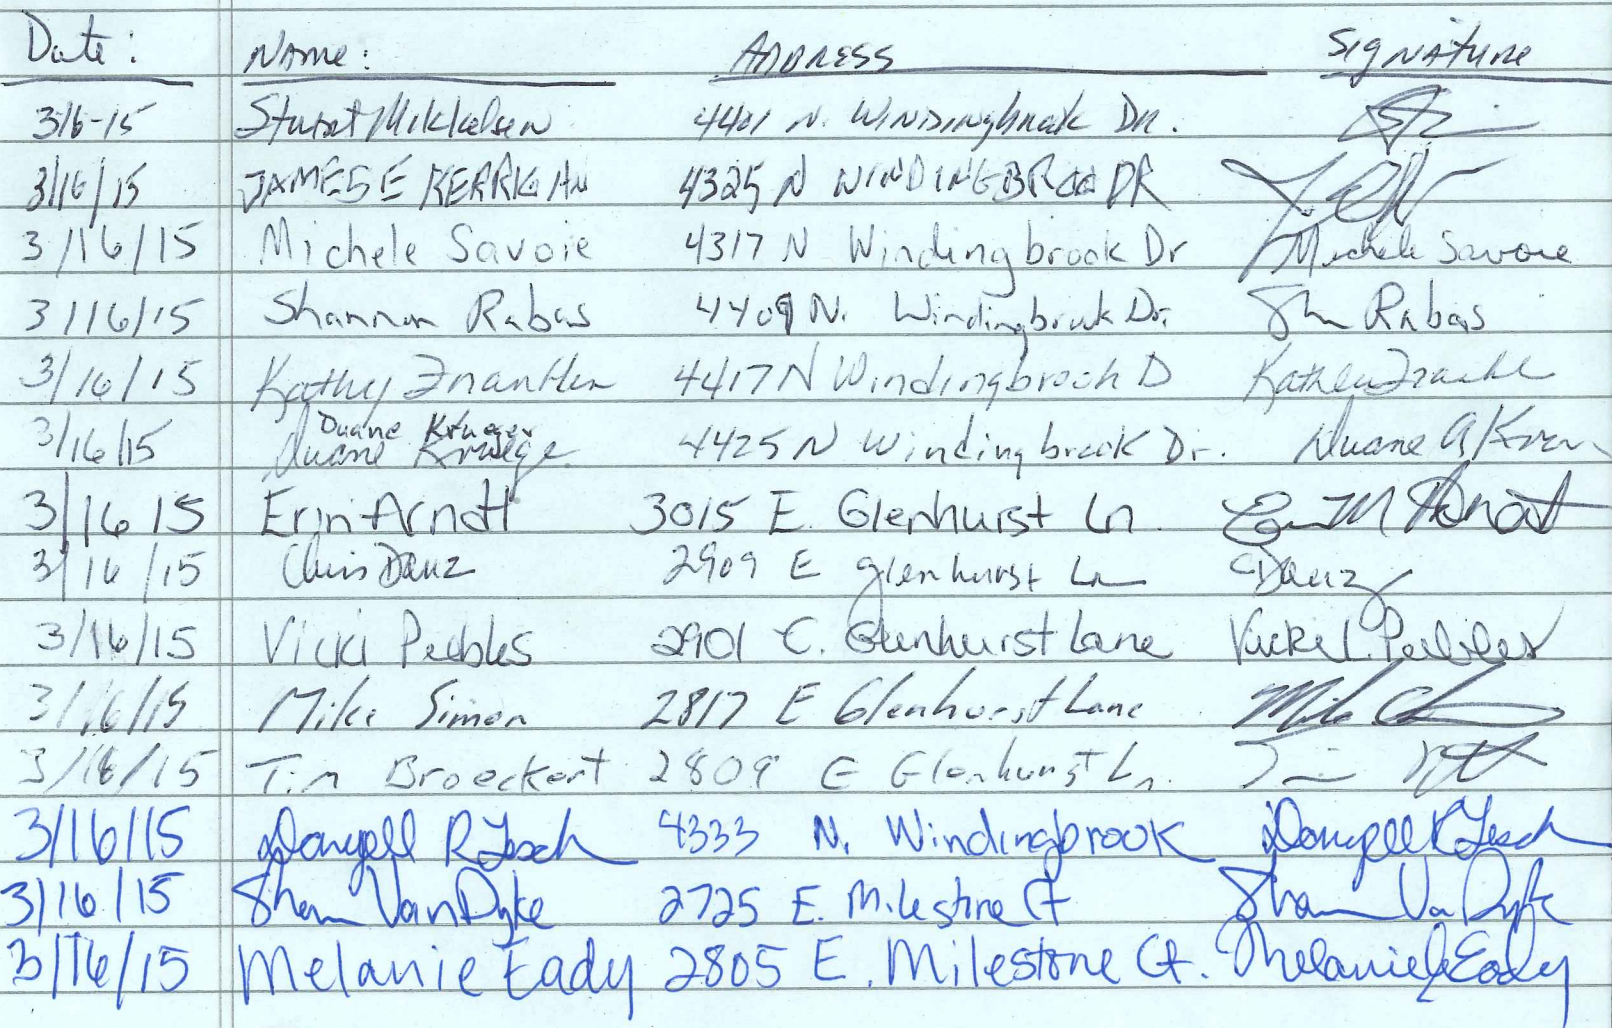 Date: NAme: ADDRESS SigNAture
3/16-15 Stuart Mikkelsen 4401 N. WINDINgbrook DR.
3/16/15 JAMES E KERRIGAN 4325 N WINDINGBROO DR
3/16/15 Michele Savoie 4317 N Windingbrook Dr Michele Savoie
3/16/15 Shannon Rabas 4409 N. Windingbrook Dr. Rabas
3/16/15 Kathy 4417 N Windingbrook D
Duane Krueger
3/16/15 Duane Kruege 4425 N Windingbrook Dr. Duane A
3/16 15 Erin Arndt 3015 E. Glenhurst Ln M Arndt
3/16/15 Chris Danz 2909 E glenhurst Ln CDanz
3/16/15 Vicki Peebles 2901 E. Glenhurst Lane Vicki L. Peebles
3/16/15 Mike Simon 2817 E Glenhurst Lane Mike
3/16/15 Tim Broeckert 2809 E Glenhurst Ln.
3/16/15 R 4333 N. Windingbrook R
3/16/15 VanDyke 2725 E. Milestone Ct VanDyke
3/16/15 Melanie Eady 2805 E. Milestone Ct. Melanie Eady